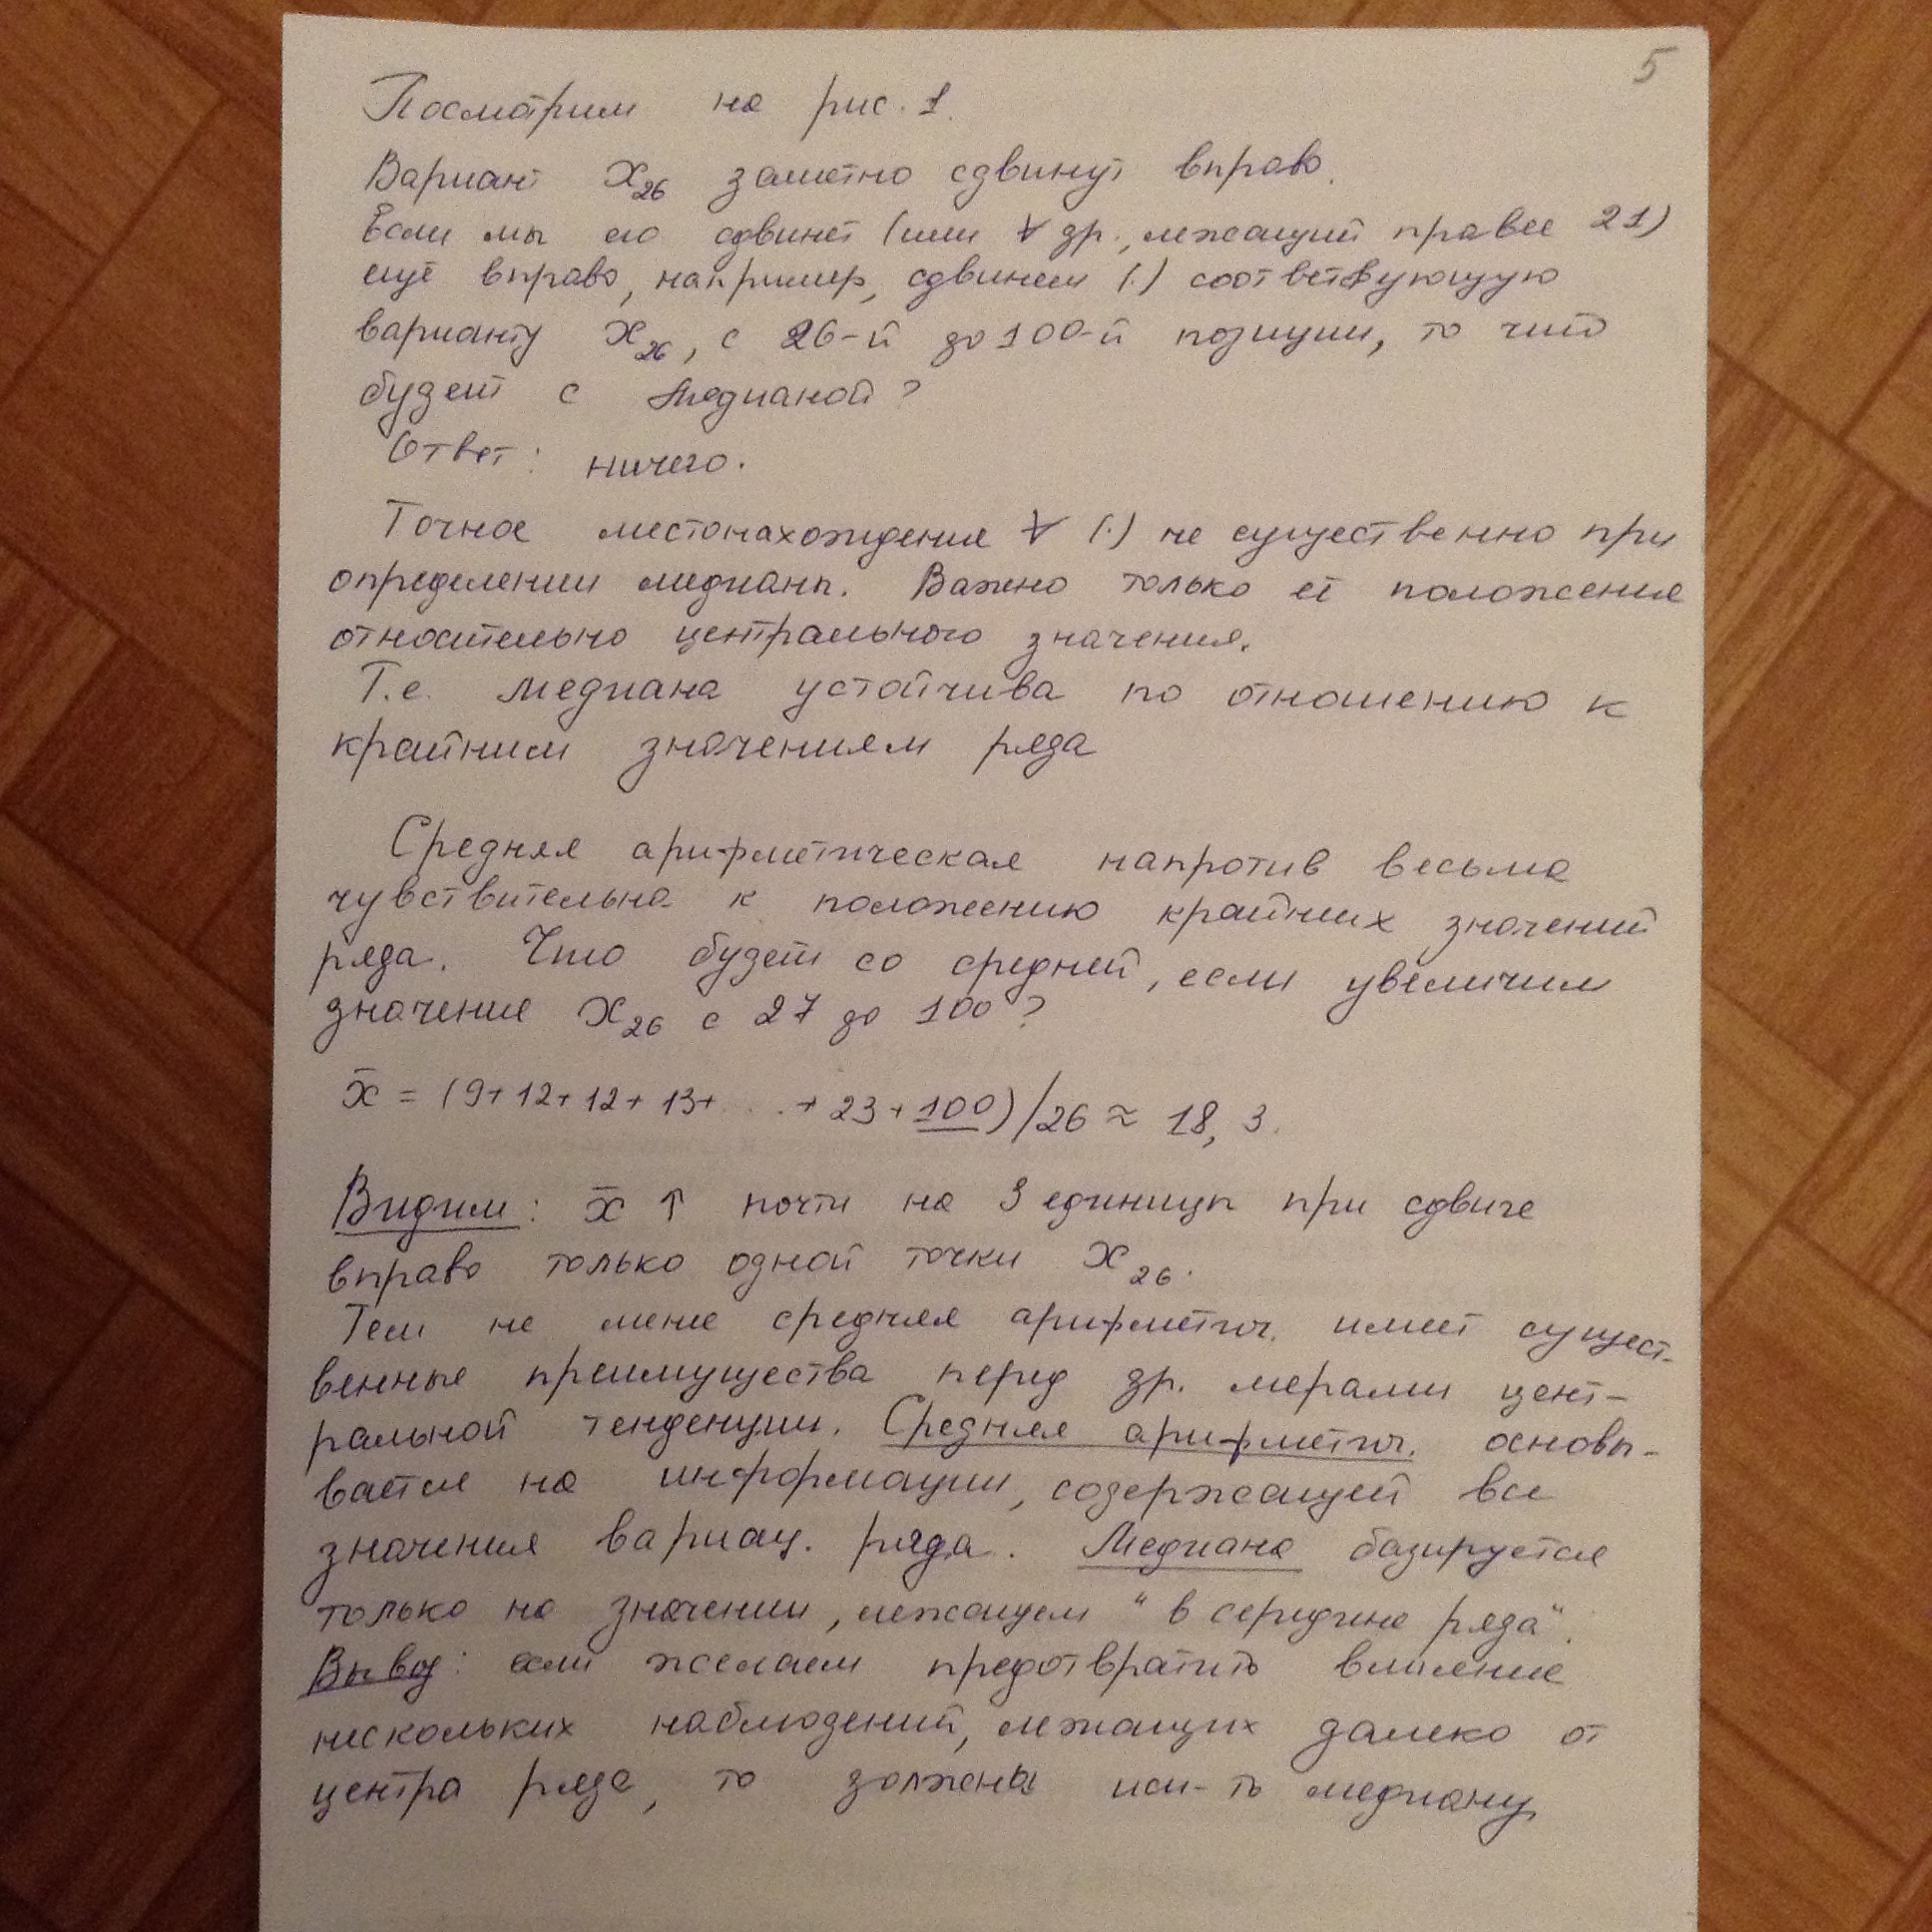 5
Посмотрим на рис. 1.
Вариант x₂₆ заметно сдвинут вправо.
Если мы его сдвинем (или ∀ др., лежащий правее 21)
ещё вправо, например, сдвинем (·) соответствующую
варианту x₂₆, с 26-й до 100-й позиции, то что
будет с медианой?
Ответ: ничего.
Точное местонахождение ∀ (·) не существенно при
определении медианы. Важно только её положение
относительно центрального значения.
Т.е. медиана устойчива по отношению к
крайним значениям ряда
Средняя арифметическая напротив весьма
чувствительна к положению крайних значений
ряда. Что будет со средней, если увеличим
значение x₂₆ с 27 до 100?
x̄ = (9+12+12+13+....+23+100)/26 ≈ 18,3.
Видим: x̄ ↑ почти на 3 единицы при сдвиге
вправо только одной точки x₂₆.
Тем не мене средняя арифметич. имеет сущест-
венные преимущества перед др. мерами цент-
ральной тенденции. Средняя арифметич. основы-
вается на информации, содержащей все
значения вариац. ряда. Медиана базируется
только на значении, лежащем "в середине ряда".
Вывод: если желаем предотвратить влияние
нескольких наблюдений, лежащих далеко от
центра ряда, то должны исп-ть медиану